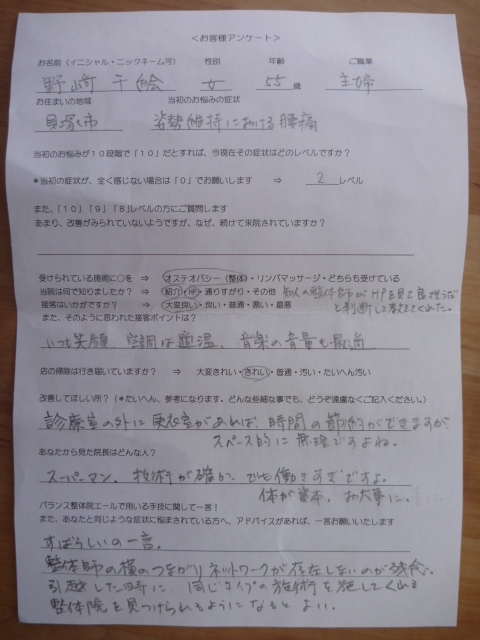 <お客様アンケート>
お名前（イニシャル・ニックネーム可） 性別 年齢 ご職業
野﨑 千絵 女 55 歳 主婦
お住まいの地域 当初のお悩みの症状
貝塚市 姿勢維持における腰痛
当初のお悩みが10段階で「10」だとすれば、今現在その症状はどのレベルですか？
*当初の症状が、全く感じない場合は「0」でお願いします ⇒ 2 レベル
また、「10」「9」「8」レベルの方にご質問します
あまり、改善がみられていないようですが、なぜ、続けて来院されていますか？
受けられている施術に○を ⇒ オステオパシー（整体）・リンパマッサージ・どちらも受けている
当院は何で知りましたか？ ⇒ 紹介・HP・通りすがり・その他 知人の整体師がHPを見て良さそうだ
接客はいかがですか？ ⇒ 大変良い・良い・普通・悪い・最悪 と判断して教えてくれた。
また、そのように思われた接客ポイントは？
いつも笑顔、空調は適温、音楽の音量も最適
店の掃除は行き届いていますか？ ⇒ 大変きれい・きれい・普通・汚い・たいへん汚い
改善してほしい所？（*たいへん、参考になります。どんな些細な事でも、どうぞ遠慮なくご記入ください。）
診療室の外に更衣室があれば、時間の節約ができますが、
スペース的に無理ですよね。
あなたから見た院長はどんな人？
スーパーマン。技術が確か。でも働きすぎですよ。
体が資本。お大事に。
バランス整体院エールで用いる手技に関して一言！
また、あなたと同じような症状に悩まされている方へ、アドバイスがあれば、一言お願いいたします
すばらしいの一言。
整体師の横のつながりネットワークが存在しないのが残念。
引越した時に、同じタイプの施術を施してくれる
整体院を見つけられるようになるとよい。